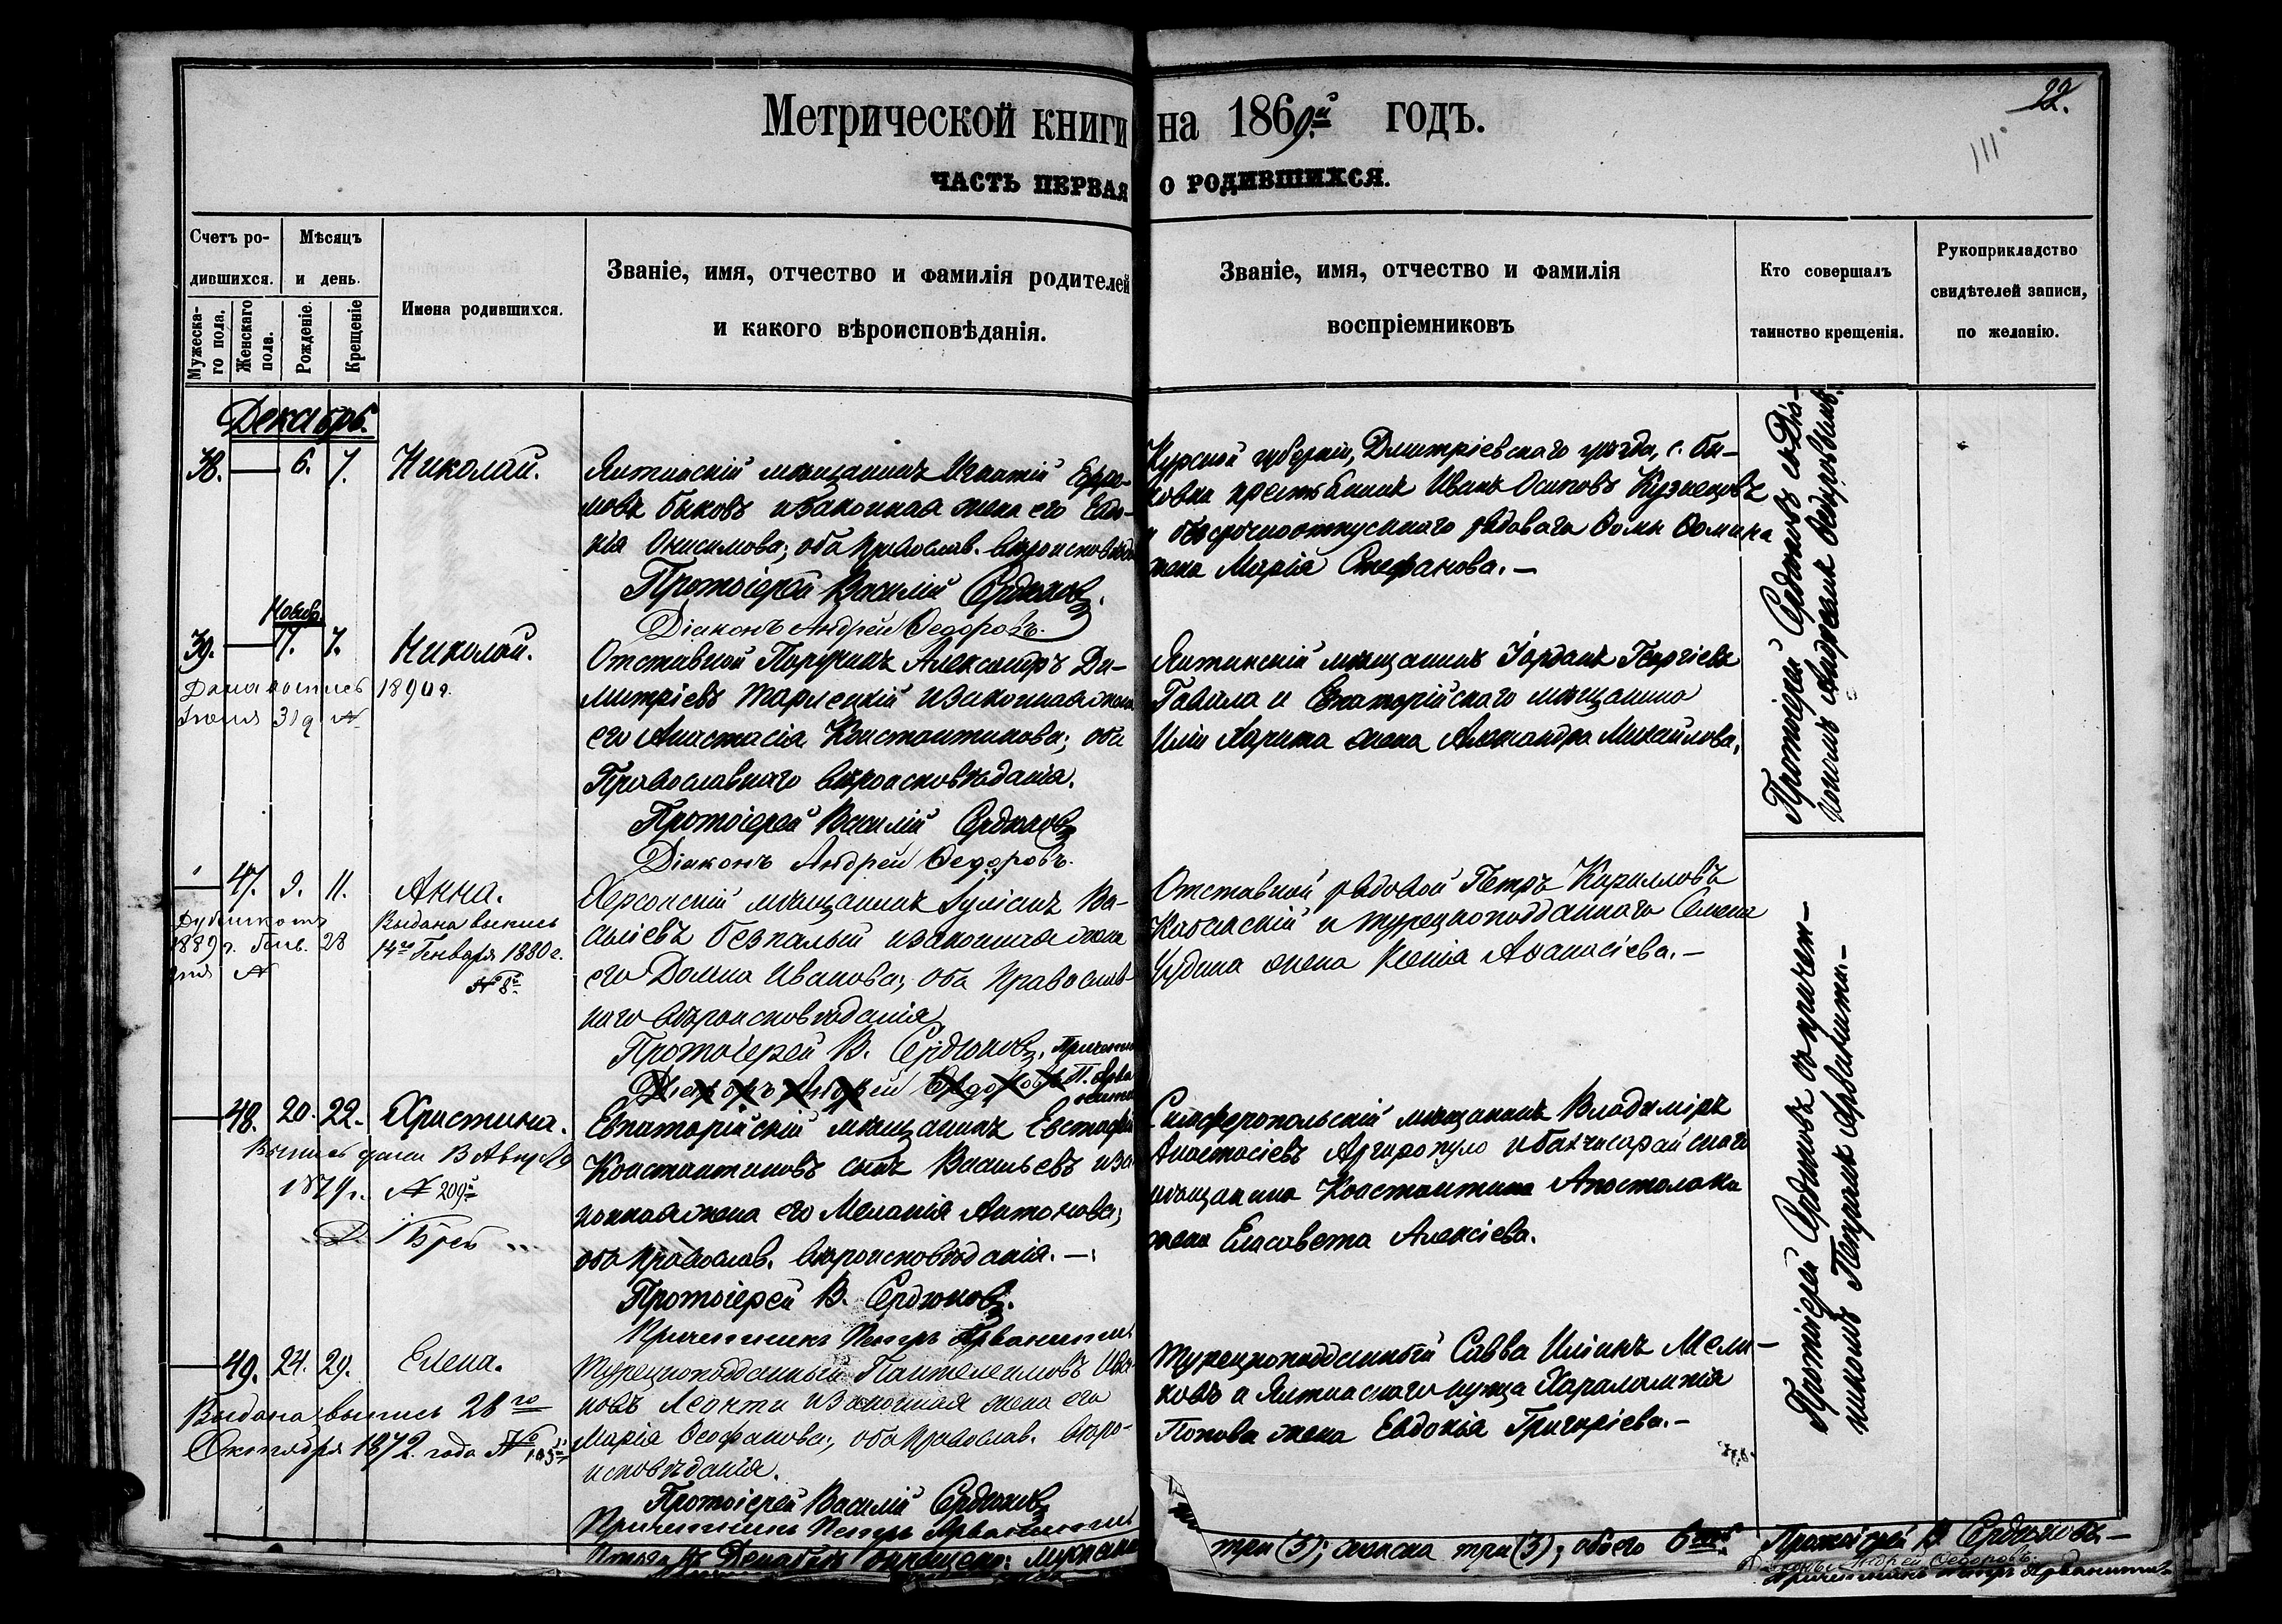 Метрической книги на 1869.й годъ.
22.
111
ЧАСТЬ ПЕРВАЯ О РОДИВШИХСЯ.
Счетъ ро-
дившихся.
Мѣсяцъ
и день.
Мужеска-
го пола.
Женскаго
пола.
Рожденіе.
Крещеніе
Имена родившихся.
Званіе, имя, отчество и фамилія родителей
и какого вѣроисповѣданія.
Званіе, имя, отчество и фамилія
воспріемниковъ
Кто совершалъ
таинство крещенія.
Рукоприкладство
свидѣтелей записи,
по желанію.
Декабрь.
38. — 6. 7. Николай.
Ялтинскій мѣщанинъ Игнатій Ефро-
мовъ Быковъ и законная жена его Евдо-
кія Онисимова; оба православ. вѣроисповѣда
Протоіерей Василій Сердюковъ.
Діаконъ Андрей Ѳедоровъ.
Курской губерніи, Дмитріевскаго уѣзда, с. Би-
ковки крестьянинъ Иванъ Осиповъ Кузнецовъ
и безсрочноотпускнаго рядоваго Ѳомы Ѳомина
жена Марія Стефанова. —
Протоіерей Сердюковъ съ Діа-
кономъ Андреемъ Ѳедоровымъ.
Ноябр.
39. — 17. 7. Николай.
Дана выпись 1890 г.
Іюня 31 д №
Отставной Поручикъ Александръ Ди-
митріевъ Тарлецкій и законная жена
его Анастасія Константинова; оба
Православнаго вѣроисповѣданія.
Протоіерей Василій Сердюковъ
Діаконъ Андрей Ѳедоровъ.
Ялтинскій мѣщанинъ Іорданъ Георгіевъ
Гавала и Евпаторійскаго мѣщанина
Иліи Ларина жена Александра Михайлова.
— 47. 9. 11. Анна.
Дубликатъ
1889 г. Янв. 28
дня №
Выдана выпись
14го Генваря 1880 г.
№ 8й
Херсонскій мѣщанинъ Іуліанъ Ва-
силіевъ Безпалый и законная жена
его Домна Иванова; оба православ-
наго вѣроисповѣданія
Протоіерей В. Сердюковъ. Причетни
Діаконъ Андрей Ѳедоровъ П. Арва
нити
Отставной рядовой Петръ Кирилловъ
и турецкоподданнаго Семена
жена Ксенія Аѳанасіева. —
Протоіерей Сердюковъ съ причет-
никомъ Петромъ Арванити. —
— 48. 20. 22. Христина.
Выпись дана 13 Авг
187 г. № 209й
Евпаторійскій мѣщанинъ Евстафій
Константиновъ сынъ Васильевъ и за
конная жена его Меланія Антонова;
оба православ. вѣроисповѣданія. —
Протоіерей В. Сердюковъ.
Причетникъ Петръ Арванити
Симферопольскій мѣщанинъ Владиміръ
Анастасіевъ Аргиропуло и бахчисарайскаго
мѣщанина Константина Апостолаки
жена Елисавета Алексіева.
— 49. 24. 29. Елена.
Выдана выпись 28го
Октября 1872 года №
Турецкоподданный Пантелеимовъ Ива
новъ Леонти и законная жена его
Марія Ѳеофанова; оба православ. вѣро-
исповѣданія.
Протоіерей Василій Сердюковъ
Причетникъ Петръ Арванити
Турецкоподданный Савва Иліинъ Мели-
ковъ и Ялтинскаго купца Харалампія
Попова жена Евдокія Григоріева. —
Итого въ Декабрѣ крещено: мужеска
три (3); женска три (3); обоего 6ть
Протоіерей В. Сердюковъ. —
Діаконъ Андрей Ѳедоровъ.
Причетникъ Петръ Арванити